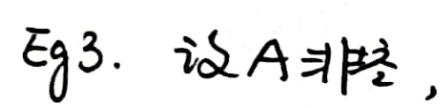 Eg3. 设A非空,